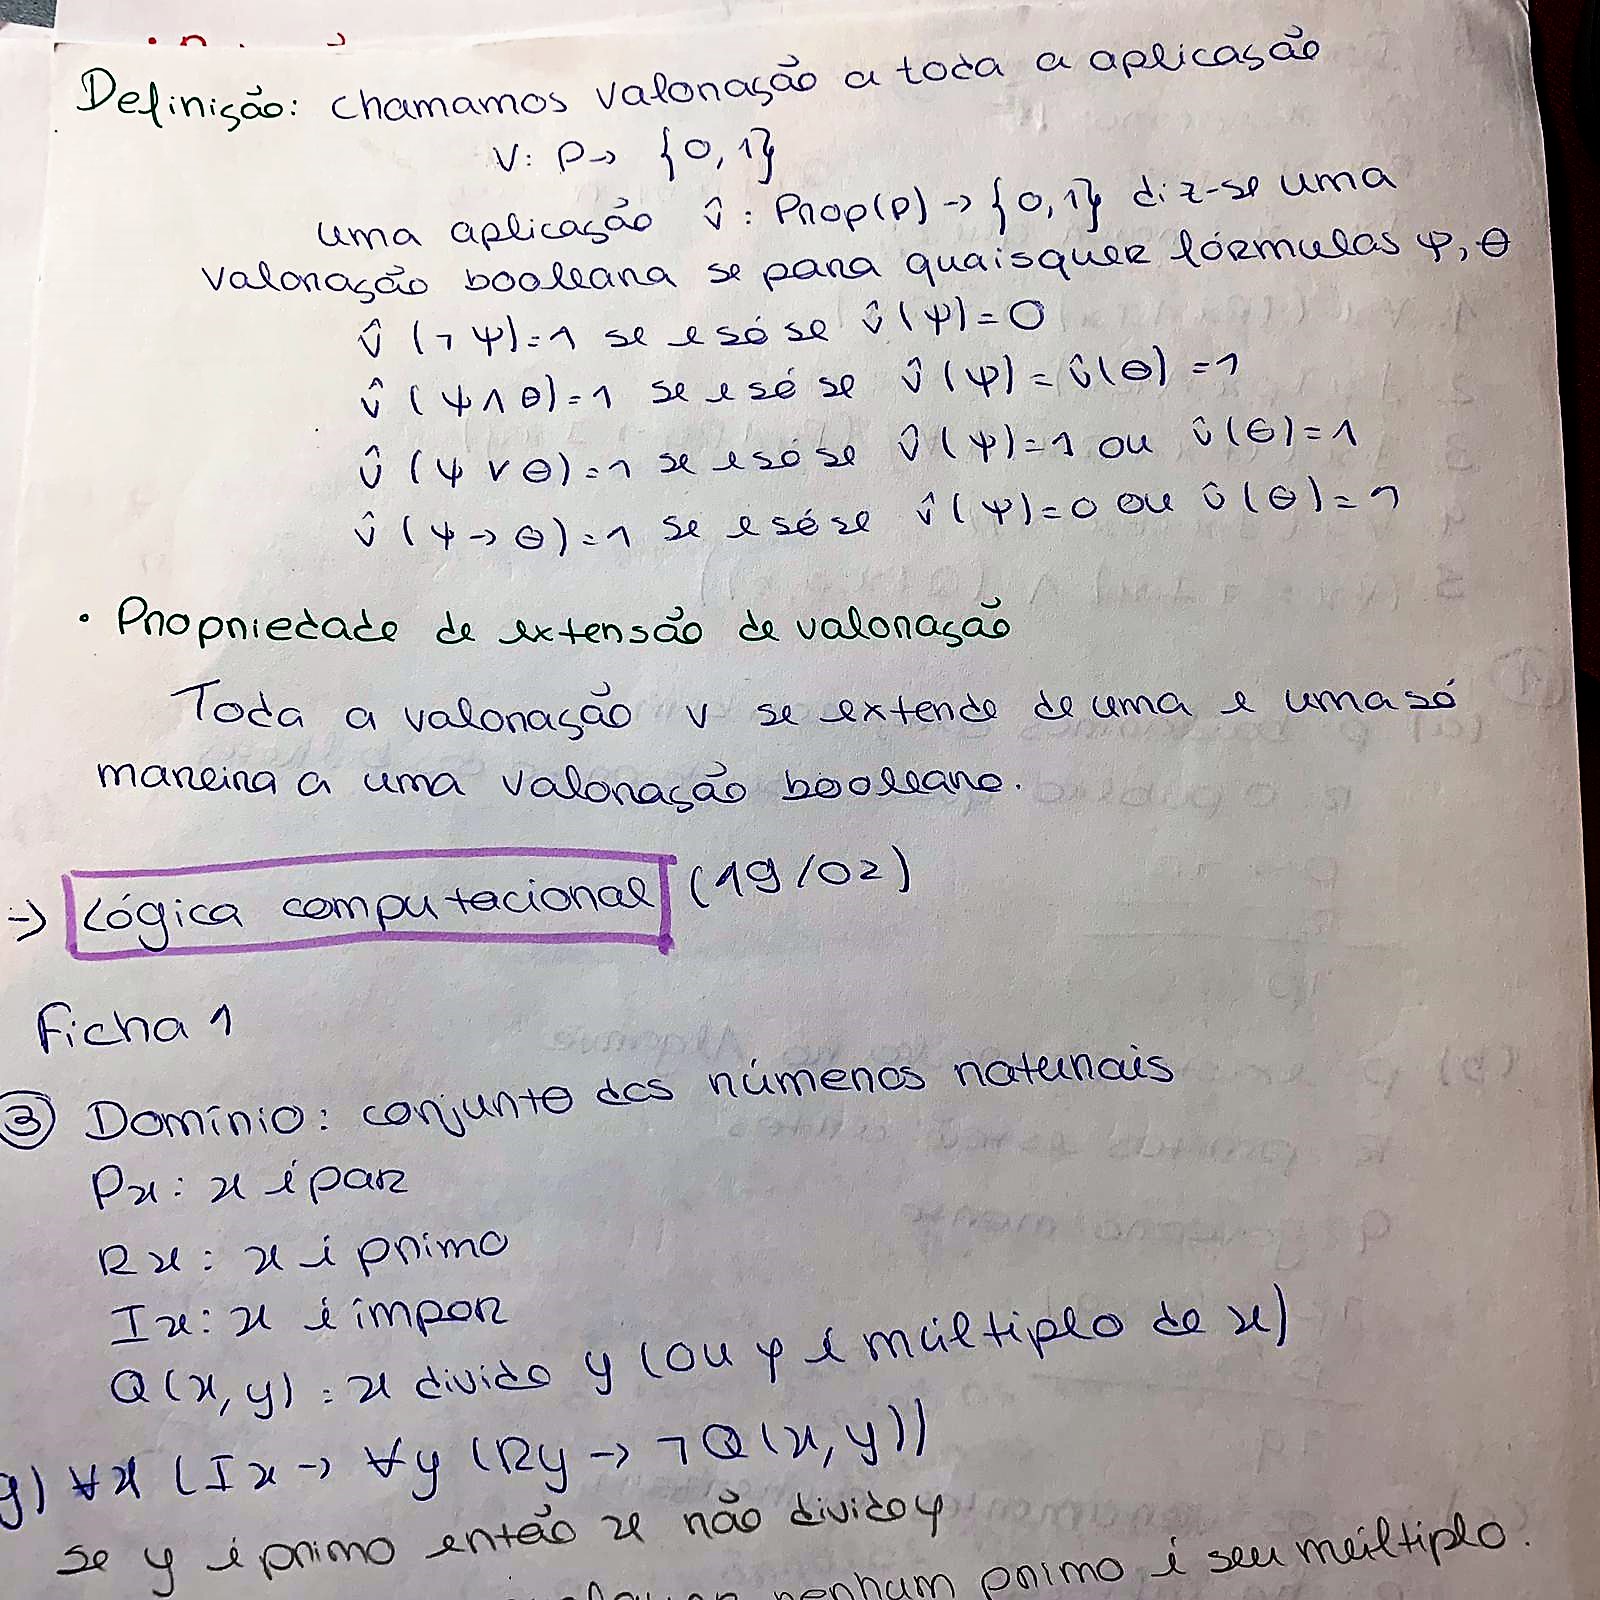 Definição: chamamos valoração a toda a aplicação
V: P→ {0,1}
uma aplicação v̂ : Prop(P) → {0,1} diz-se uma
valoração booleana se para quaisquer fórmulas ψ, θ
v̂ (¬ψ)=1 se e só se v̂ (ψ)=0
v̂ (ψ∧θ)=1 se e só se v̂ (ψ) = v̂(θ) =1
v̂ (ψ∨θ)=1 se e só se v̂ (ψ)=1 ou v̂(θ)=1
v̂ (ψ→θ)=1 se e só se v̂ (ψ)=0 ou v̂ (θ)=1
• Propriedade de extensão de valoração
Toda a valoração v se extende de uma e uma só
maneira a uma valoração booleana.
→ Lógica computacional (19/02)
Ficha 1
③ Domínio: conjunto dos números naturais
Px: x é par
Rx: x é primo
Ix: x é ímpar
Q(x,y): x divide y (ou y é múltiplo de x)
g) ∀x (Ix → ∀y (Ry → ¬Q(x,y))
se y é primo então x não divide y
nenhum primo é seu múltiplo.